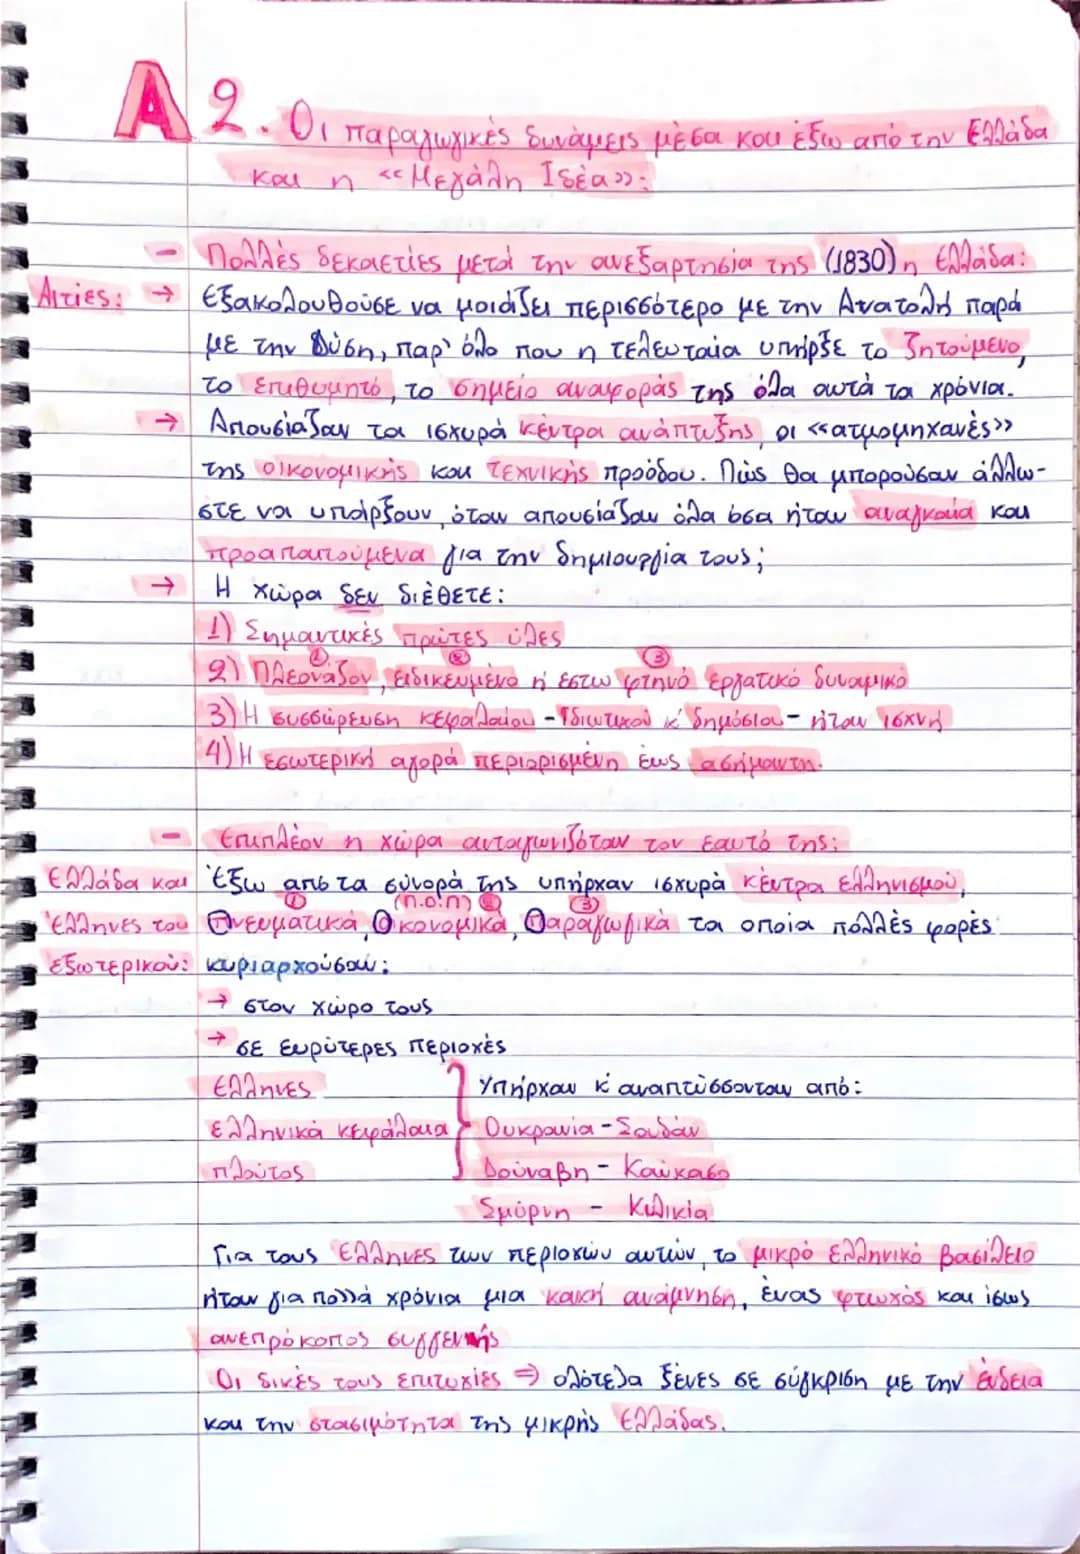 Α 2. Οι παραγωγικές δυνάμεις μέσα και έξω από την Ελλάδα
και η «Μεγάλη Ιδέα»:
- Πολλές δεκαετίες μετά την ανεξαρτησία της (1830) η Ελλάδα:
Αιτίες: → Εξακολουθούσε να μοιάζει περισσότερο με την Ανατολή παρά
με την Δύση, παρ' όλο που η τελευταία υπήρξε το ζητούμενο,
το επιθυμητό, το σημείο αναφοράς της όλα αυτά τα χρόνια.
→ Απουσίαζαν τα ισχυρά κέντρα ανάπτυξης, οι «ατμομηχανές»
της οικονομικής και τεχνικής προόδου. Πώς θα μπορούσαν άλλω-
στε να υπάρξουν, όταν απουσίαζαν όλα όσα ήταν αναγκαία και
προαπαιτούμενα για την δημιουργία τους;
→ Η χώρα δεν διέθετε:
1) Σημαντικές πρώτες ύλες
① ② ③
2) Πλεονάζον, ειδικευμένο ή έστω φτηνό εργατικό δυναμικό
3) Η συσσώρευση κεφαλαίου - Ιδιωτικού κ' δημόσιου - ήταν ισχνή
4) Η εσωτερική αγορά περιορισμένη έως ασήμαντη.
- Επιπλέον η χώρα ανταγωνιζόταν τον εαυτό της:
Ελλάδα και Έξω από τα σύνορά της υπήρχαν ισχυρά κέντρα ελληνισμού,
① (π.ο.π) ② ③
Έλληνες του Πνευματικά, Οικονομικά, Παραγωγικά τα οποία πολλές φορές
εξωτερικού: κυριαρχούσαν:
→ στον χώρο τους
→ σε ευρύτερες περιοχές
Έλληνες } Υπήρχαν κ' αναπτύσσονταν από:
ελληνικά κεφάλαια Ουκρανία - Σουδάν
πλούτος Δούναβη - Καύκασο
Σμύρνη - Κιλικία
Για τους Έλληνες των περιοχών αυτών, το μικρό ελληνικό βασίλειο
ήταν για πολλά χρόνια μια κακή ανάμνηση, ένας φτωχός και ίσως
ανεπρόκοπος συγγενής
Οι δικές τους επιτυχίες ⇒ ολότελα ξένες σε σύγκριση με την ένδεια
και την στασιμότητα της μικρής Ελλάδας.